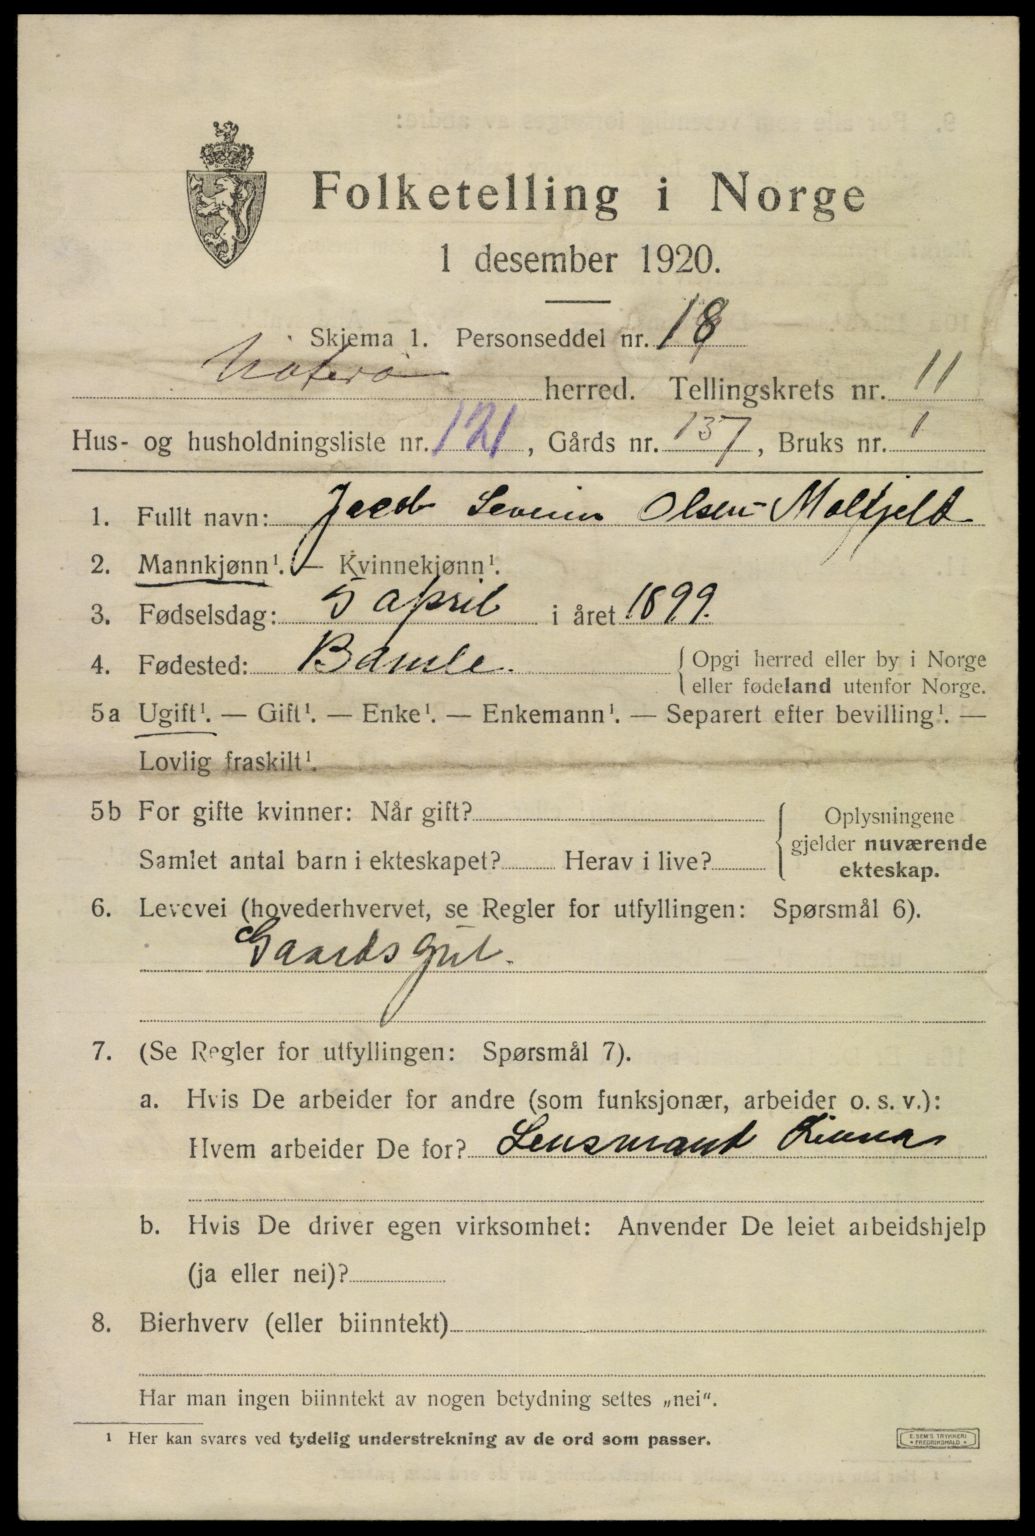 Folketelling i Norge
1 desember 1920.
Skjema 1. Personseddel nr. 18
Nøterø herred. Tellingskrets nr. 11
Hus- og husholdningsliste nr. 121, Gårds nr. 137, Bruks nr. 1
1. Fullt navn: Jacob Severin Olsen Molfjeld
2. Mannkjønn¹. — Kvinnekjønn¹.
3. Fødselsdag: 5 april i året 1899.
4. Fødested: Bamle. Opgi herred eller by i Norge
eller fødeland utenfor Norge.
5a Ugift¹. — Gift¹. — Enke¹. — Enkemann¹. — Separert efter bevilling¹. —
Lovlig fraskilt¹.
5b For gifte kvinner: Når gift? Oplysningene
gjelder nuværende
Samlet antal barn i ekteskapet? Herav i live?
ekteskap.
6. Levevei (hovederhvervet, se Regler for utfyllingen: Spørsmål 6).
Gaardsgut.
7. (Se Regler for utfyllingen: Spørsmål 7).
a. Hvis De arbeider for andre (som funksjonær, arbeider o. s. v.):
Hvem arbeider De for? Lensmand
b. Hvis De driver egen virksomhet: Anvender De leiet arbeidshjelp
(ja eller nei)?
8. Bierhverv (eller biinntekt)
Har man ingen biinntekt av nogen betydning settes „nei".
¹ Her kan svares ved tydelig understrekning av de ord som passer.
E. SEM'S TRYKKERI
FREDRIKSHALD